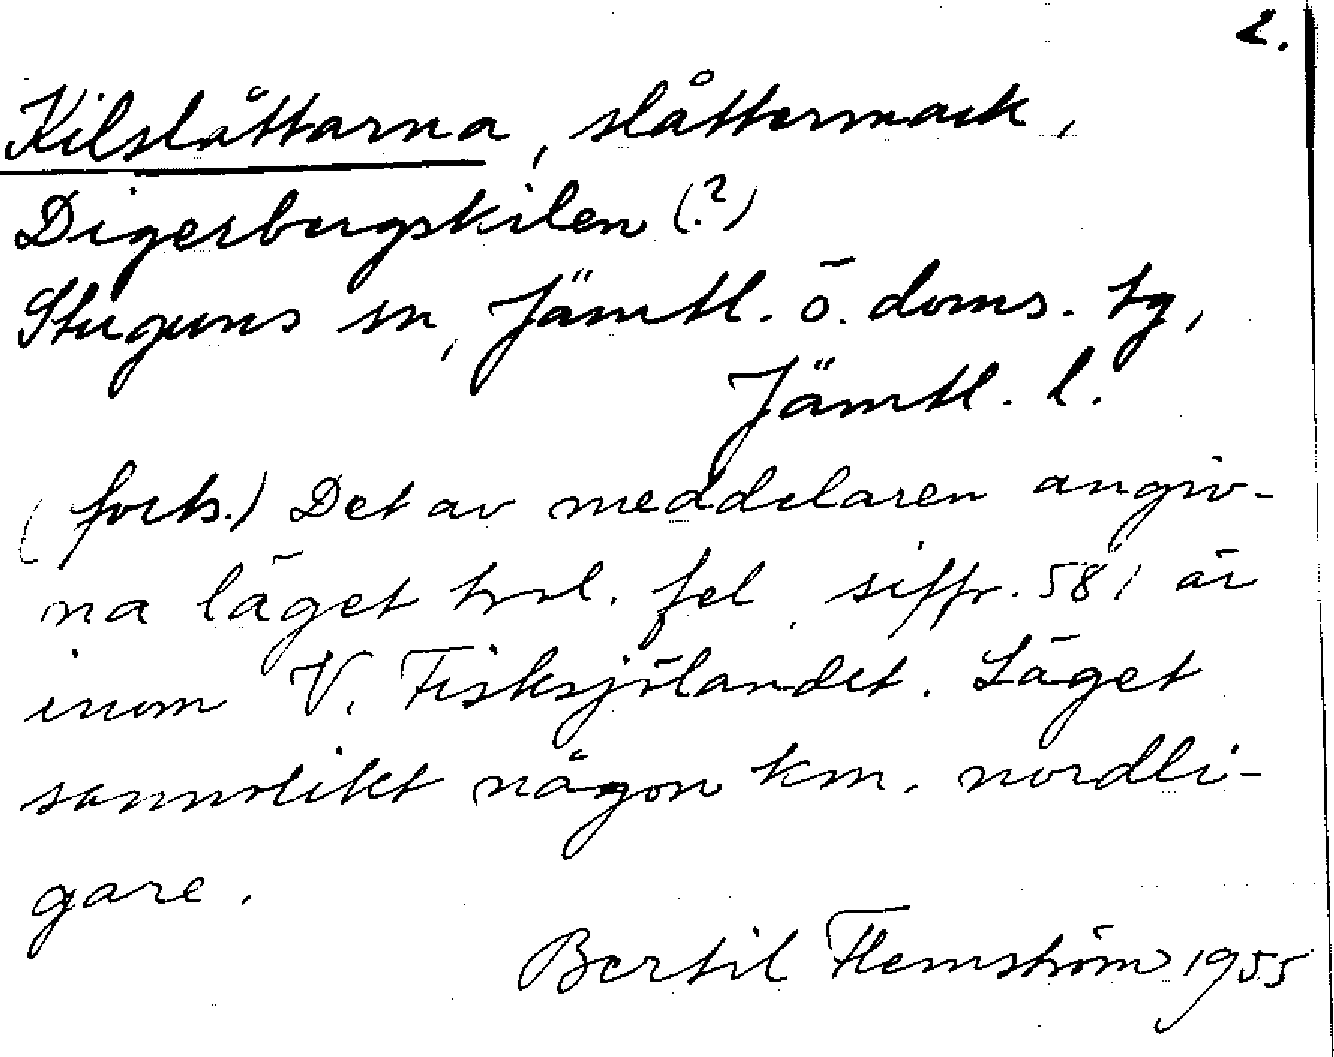 2.
Kilslåttarna, slåttermark,
Digerbergskilen (?)
Stuguns sn, Jämtl. ö. doms. tg,
Jämtl. l.
(forts.) Det av meddelaren angiv-
na läget trol. fel, siffr. 581 är
inom V. Fisksjölandet. Läget
sannolikt någon km. nordli-
gare.
Bertil Flemström 1955